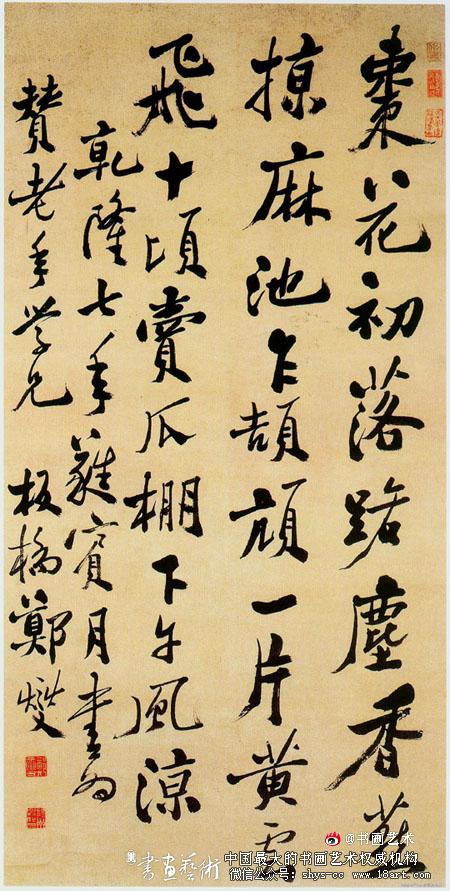 棗花初落路塵香燕
掠麻池乍頡頏一片黄雲
飛十頃賣瓜棚下午風涼
乾隆七年蕤賓月書為
贊老年學兄 板橋鄭燮
@书画艺术
書畫藝術 中国最大的书画艺术权威机构
微信公众号:shys-cc www.18art.com